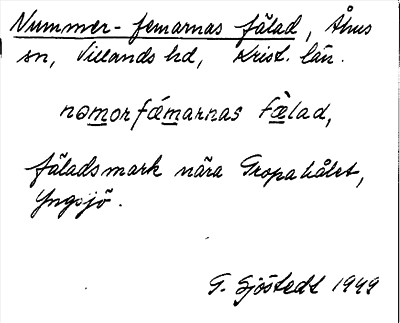 Nummer-femarnas fälad, Åhus
sn, Villands hd, Krist. län.
nomorfǽmarnas fæ̀lad,
fäladsmark nära Gropahålet,
Yngsjö.
G. Sjöstedt 1949